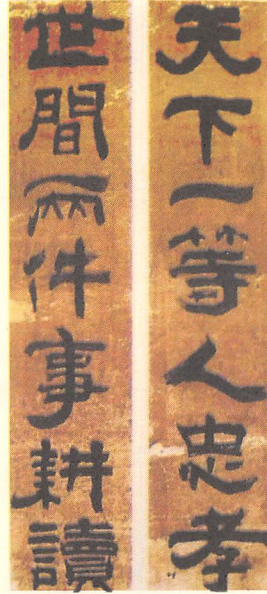 天下一等人忠孝
世間兩件事耕讀